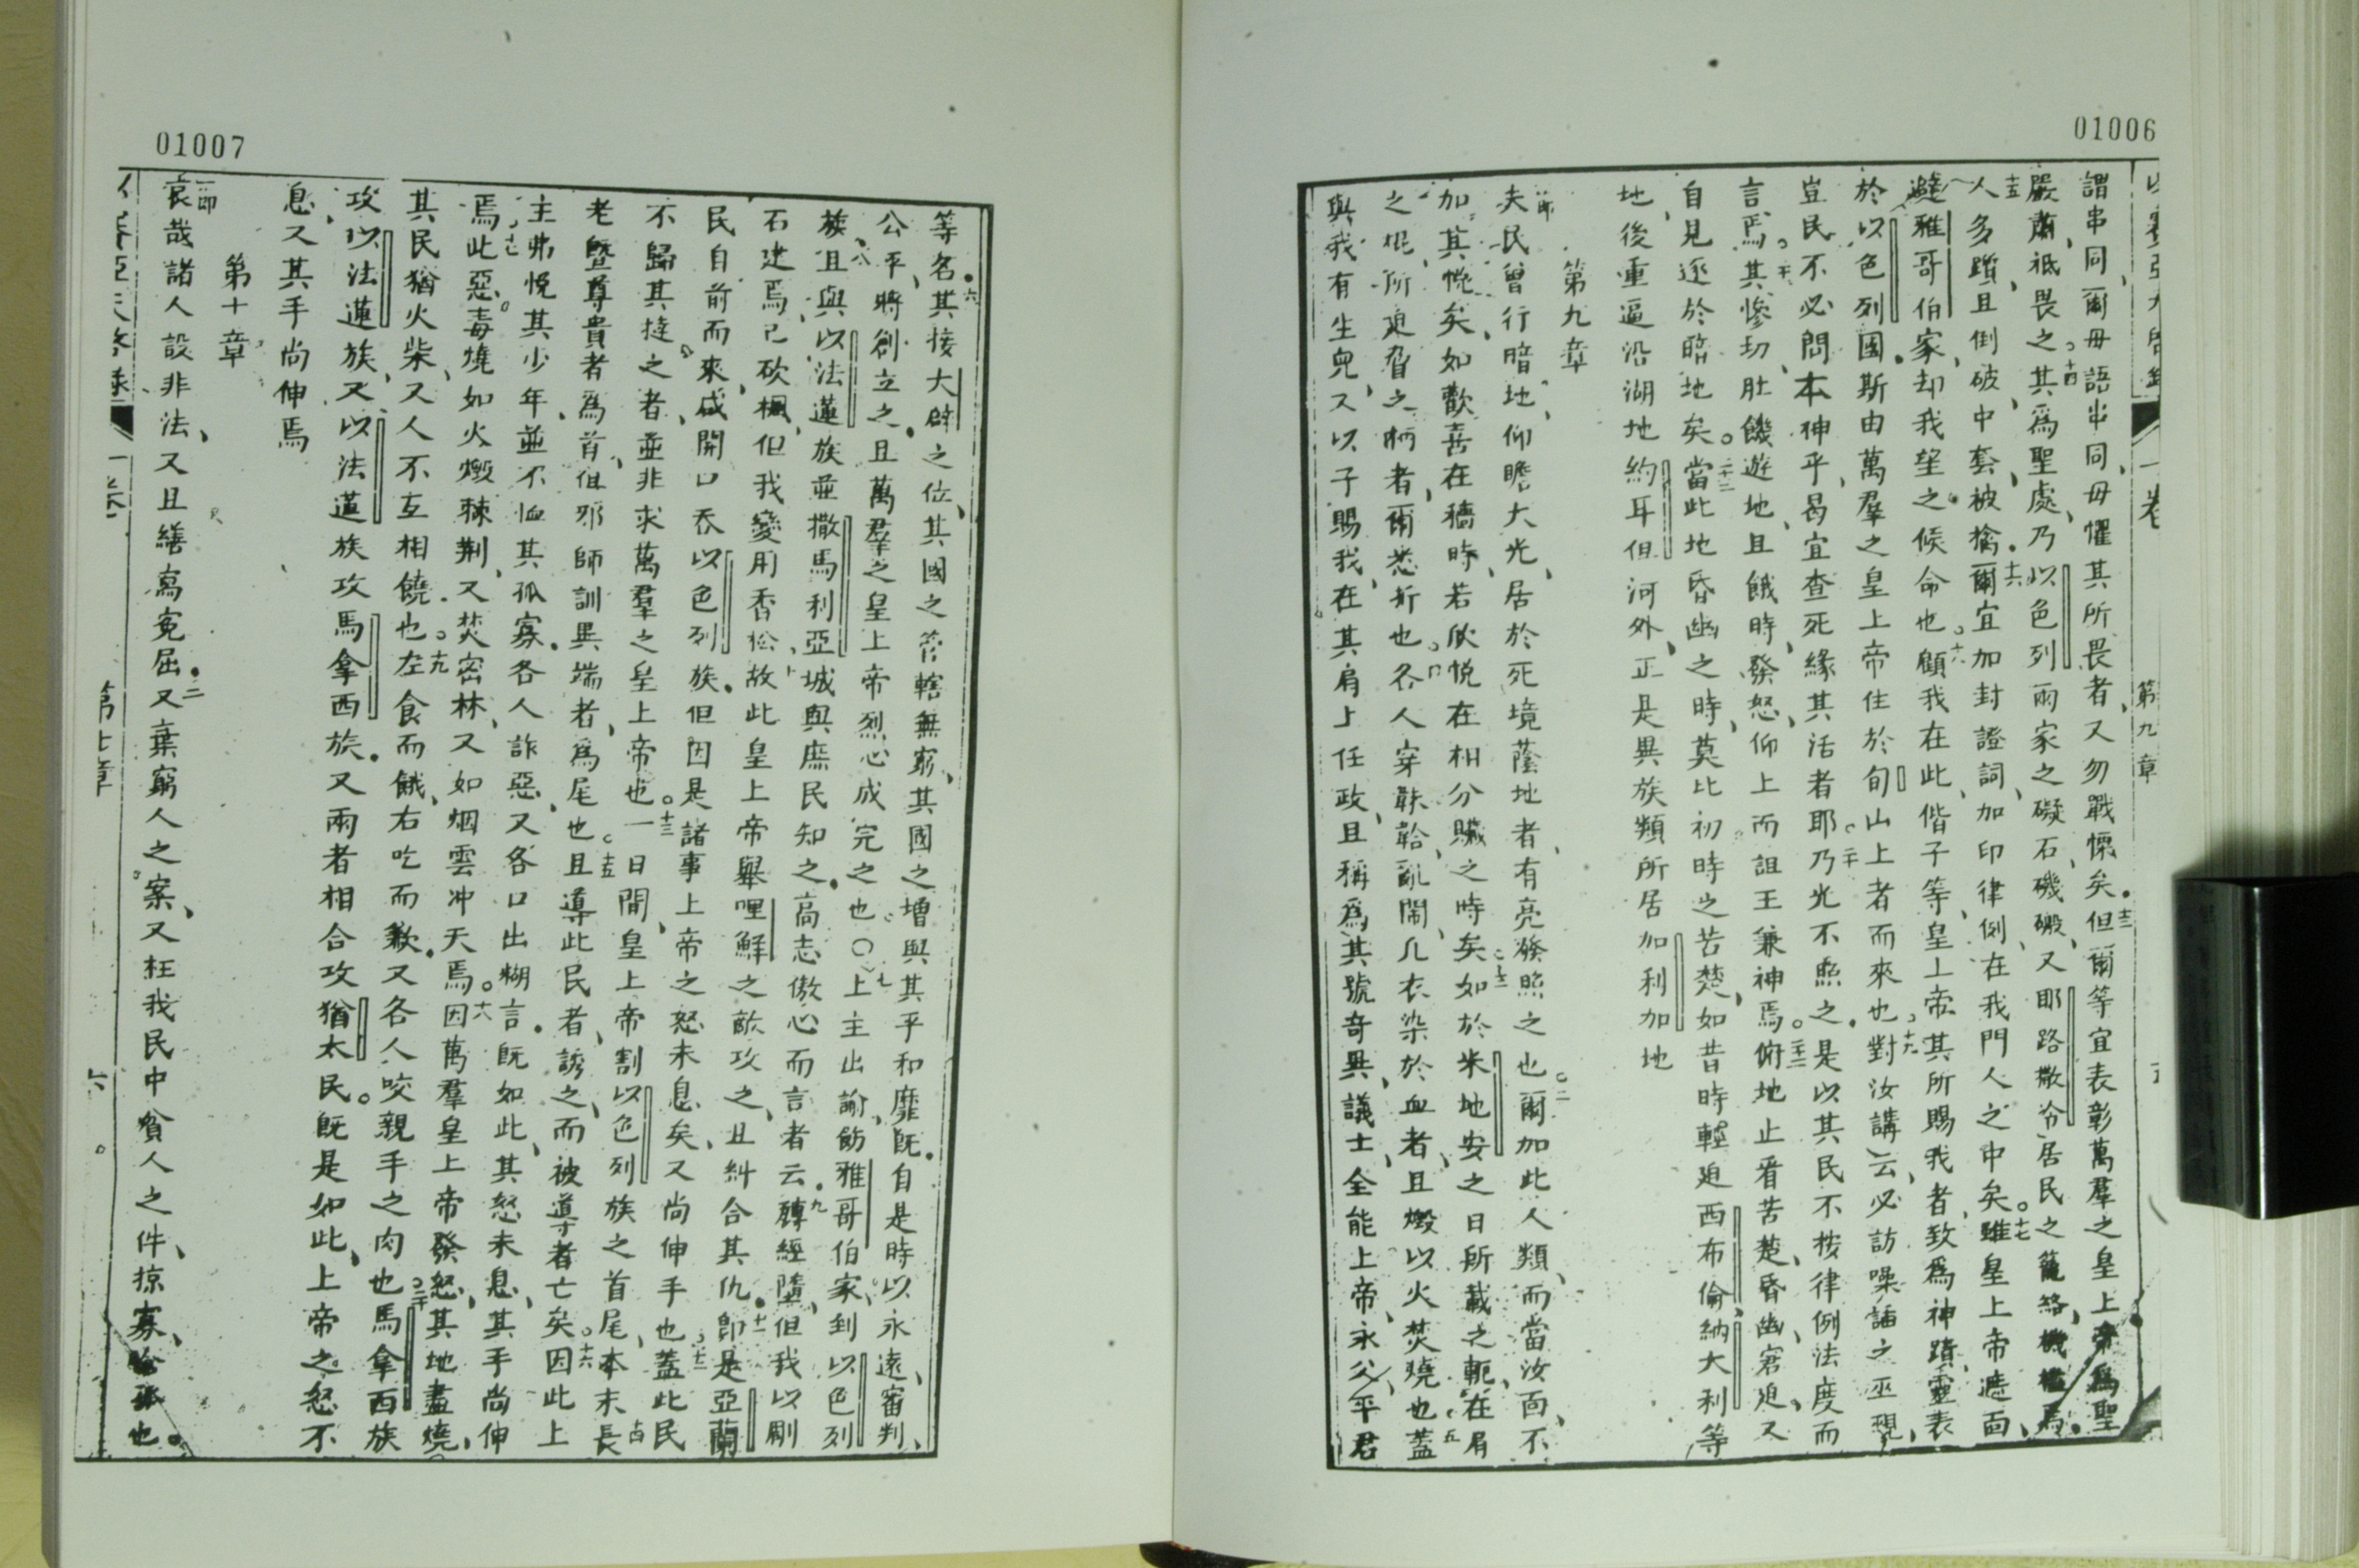 01006
第九章
謂串同爾毋語串同毋懼其所畏者又勿戰慄矣十三但爾等宜表彰萬羣之皇上帝爲聖
嚴肅祗畏之十四其爲聖處乃以色列兩家之礙石磯磤又耶路撒冷居民之籠絡機檻焉
十五人多躓且倒破中套被擒十六爾宜加封證詞加印律例在我門人之中矣十七雖皇上帝遮面
避雅哥伯家却我望之候命也十八顧我在此偕子等皇上帝其所賜我者致爲神蹟靈表
於以色列國斯由萬羣之皇上帝住於旬山上者而來也十九對汝講云必訪噪謡之巫覡
豈民不必問本神乎曷宜查死緣其活者耶二十乃光不照之是以其民不按律例法度而
言焉其慘切肚饑遊地且餓時發怒仰上而詛王兼神焉俯地止看苦楚昏幽窘迫又
自見逐於暗地矣二十二當此地昏幽之時莫比初時之苦楚如昔時輕迫西布倫納大利等
地後重逼沿湖地約耳但河外正是異族類所居加利加地
第九章
一節夫民曾行暗地仰瞻大光居於死境蔭地者有亮發照之也二爾加此人類而當汝面不
加其悅矣如歡喜在穡時若欣悅在相分贓之時矣如於米地安之日所載之軛在肩
之棍所迫脅之柄者爾悉折也各人穿靺鞈亂鬧凡衣染於血者且燬以火焚燒也五蓋
與我有生兒又以子賜我在其肩上任政且稱爲其號奇異議士全能上帝永父平君
01007
等名六其接大闢之位其國之管轄無窮其國之增與其平和靡旣自是時以永遠審判
公平將創立之且萬羣之皇上帝烈心成完之也〇七上主出諭飭雅哥伯家到以色列
族八且與以法蓮族並撒馬利亞城與庶民知之高志傲心而言者云九磚經墮但我以剛
石建焉已砍楓但我變用香松十故此皇上帝舉哩鮮之敵攻之且糾合其仇十一卽是亞蘭
民自前而來咸開口呑以色列族但因是諸事上帝之怒未息矣又尚伸手也十二蓋此民
不歸其撻之者並非求萬羣之皇上帝也十三一日間皇上帝割以色列族之首尾本末十四長
老曁尊貴者爲首但邪師訓異端者爲尾也十五且導此民者誘之而被導者亡矣十六因此上
主弗悅其少年並不恤其孤寡各人詐惡又各口出糊言旣如此其怒未息其手尚伸
焉十七此惡毒燒如火燬棘荆又焚密林又如烟雲冲天焉十八因萬羣皇上帝發怒其地盡燒
其民猶火柴又人不互相饒也十九左食而餓右吃而歉又各人咬親手之肉也二十馬拿西族
攻以法蓮族又以法蓮族攻馬拿西族又兩者相合攻猶太民旣是如此上帝之怒不
息又其手尚伸焉
第十章
一節哀哉諸人設非法又且繕寫寃屈二又棄窮人之案又枉我民中貧人之件掠寡